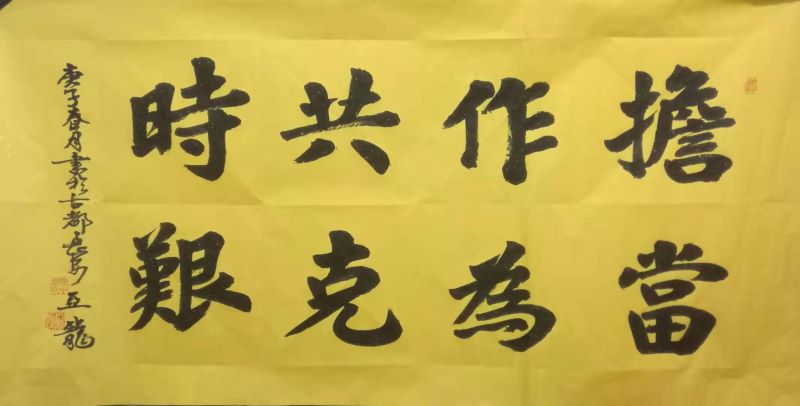 擔當
作為
共克
時艱
庚子春月書於古都長安亞龍